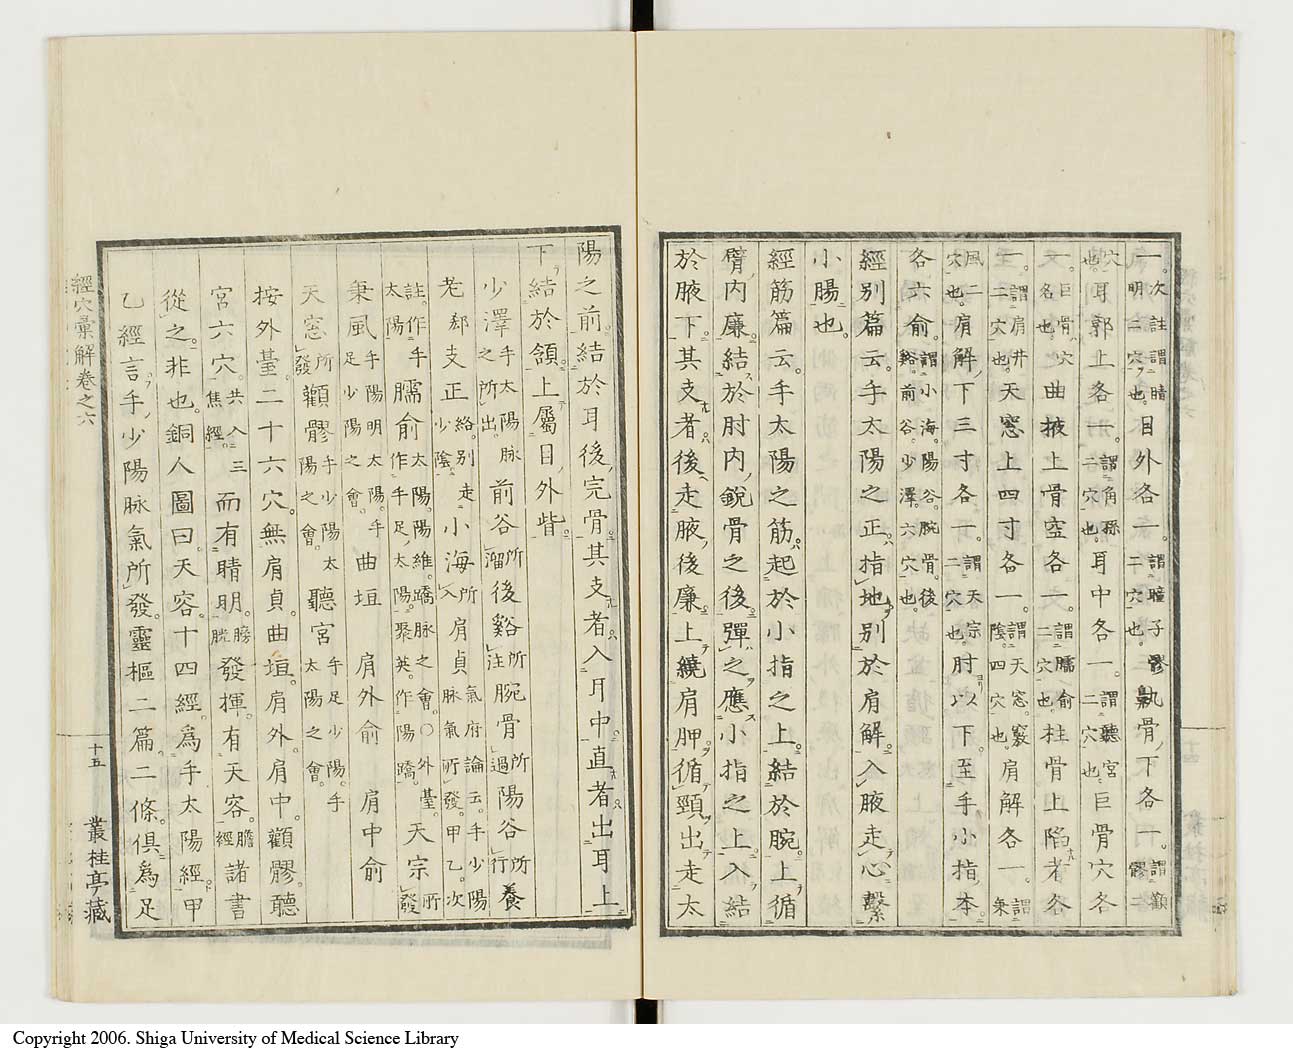 一。次註謂睛明二穴也。目外各一。謂瞳子髎二穴也。鼽骨下各一。謂顴髎二
穴也。耳郭上各一。謂角孫二穴也。耳中各一。謂聽宮二穴也。巨骨穴各
一。巨骨穴名也。曲掖上骨空各一。謂臑俞二穴也。柱骨上陷者各
一。謂肩井二穴也。天窓上四寸各一。謂天窓竅陰四穴也。肩解各一。謂秉
風二穴也。肩解下三寸各一。謂天宗二穴也。肘以下至手小指本
各六俞。謂小海。陽谷。腕骨。後谿。前谷。少澤。六穴也。
經別篇云。手太陽之正。指地別於肩解。入腋走心繫
小腸也。
經筋篇云。手太陽之筋。起於小指之上。結於腕。上循
臂內廉。結於肘內銳骨之後。彈之應小指之上。入結
於腋下。其支者。後走腋後廉。上繞肩胛。循頸出走太
陽之前。結於耳後完骨。其支者。入耳中。直者。出耳上。
下結於頷。上屬目外眥。
少澤手太陽脉之所出。前谷所溜後谿所注腕骨所過陽谷所行養
老郄支正絡。別走少陰。小海所入肩貞脉氣所發。甲乙。次氣府論云。手少陽
註。作手太陽臑俞太陽。陽維。蹻脉之會。〇外臺。作手足太陽。聚英。作陽蹻。天宗所發
秉風手陽明太陽。手足少陽之會。曲垣 肩外俞 肩中俞
天窓所發顴髎手少陽太陽之會。聽宮手足少陽。手太陽之會。
按外臺。二十六穴。無肩貞。曲垣。肩外。肩中。顴髎。聽
宮六穴。共入三焦經。而有睛明。膀胱發揮。有天容。膽經諸書
從之。非也。銅人圖曰。天容。十四經爲手太陽經。甲
乙經言手少陽脉氣所發。靈樞二篇。二條。俱爲足
經穴彙解卷之六
十五
叢桂亭藏
Copyright 2006. Shiga University of Medical Science Library